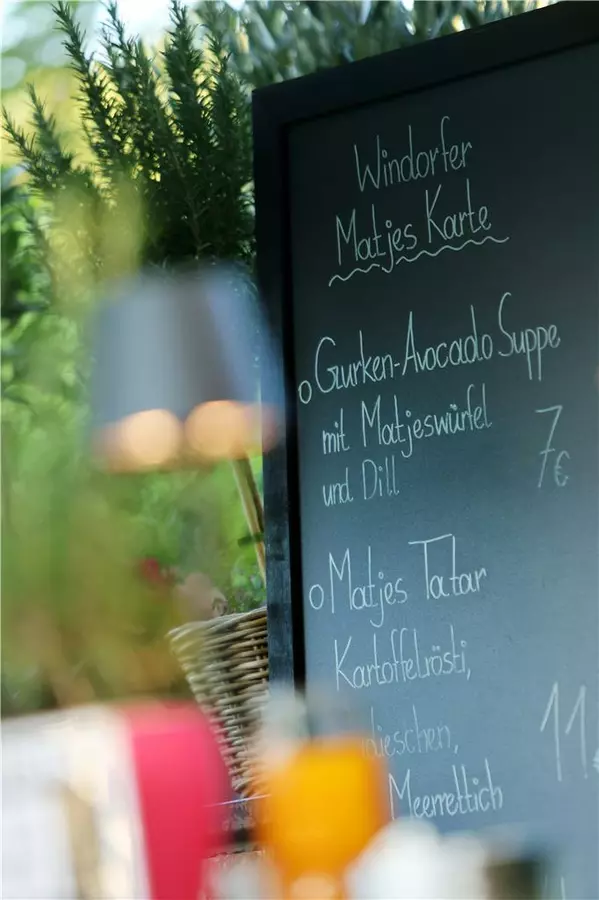 Windorfer
Matjes Karte
o Gurken-Avocado Suppe
mit Matjeswürfel
und Dill 7 €
o Matjes Tatar
Kartoffelrösti,
Meerrettich 11 €